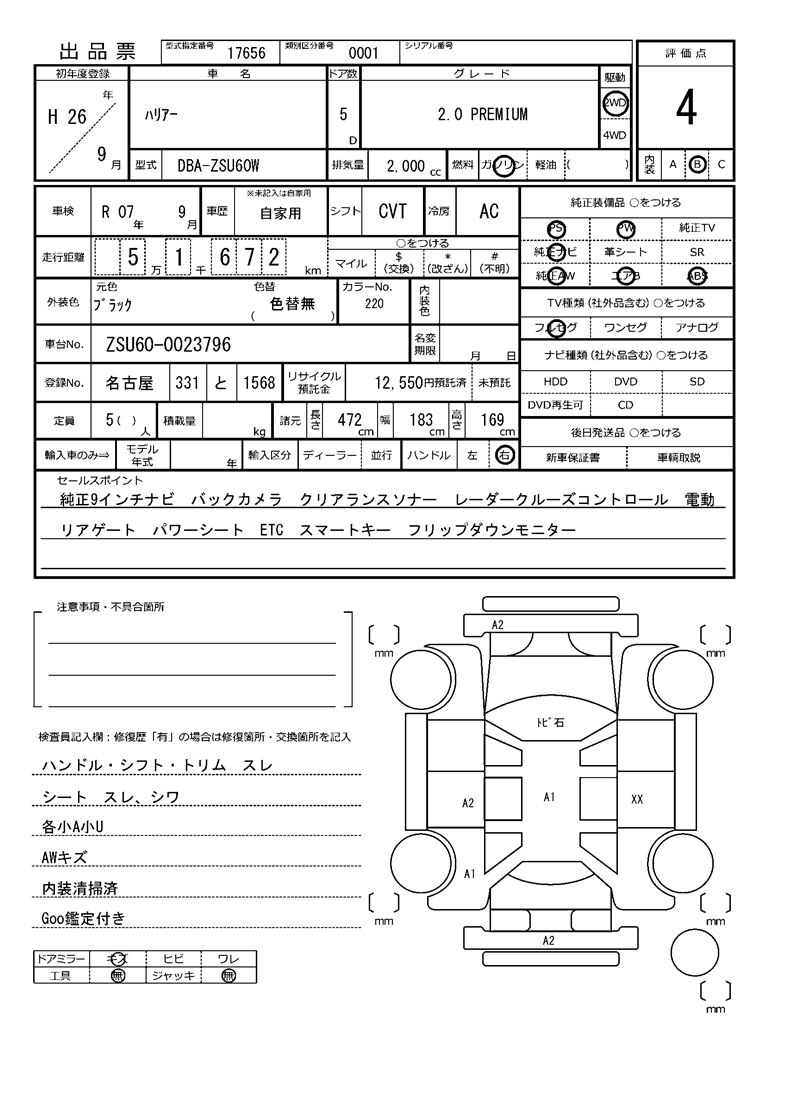 出品票 型式指定番号 17656 類別区分番号 0001 シリアル番号
初年度登録 車名 ドア数 グレード 駆動 評価点
H 26 年 9 月 ハリアー 5 D 2.0 PREMIUM 2WD 4WD 4
型式 DBA-ZSU60W 排気量 2,000 cc 燃料 ガソリン 軽油 ( ) 内装 A B C
車検 R 07 年 9 月 車歴 ※未記入は自家用 自家用 シフト CVT 冷房 AC 純正装備品 ○をつける
PS PW 純正TV
走行距離 5 万 1 千 6 7 2 km ○をつける マイル $ (交換) * (改ざん) # (不明)
純正ナビ 革シート SR
純正AW エアB ABS
外装色 元色 ブラック 色替 ( 色替無 ) カラーNo. 220 内装色
TV種類(社外品含む) ○をつける
フルセグ ワンセグ アナログ
車台No. ZSU60-0023796 名変期限 月 日
ナビ種類(社外品含む) ○をつける
登録No. 名古屋 331 と 1568 リサイクル預託金 12,550円預託済 未預託
HDD DVD SD
DVD再生可 CD
定員 5 ( ) 人 積載量 kg 諸元 長さ 472 cm 幅 183 cm 高さ 169 cm
後日発送品 ○をつける
輸入車のみ⇒ モデル年式 年 輸入区分 ディーラー 並行 ハンドル 左 右
新車保証書 車輌取説
セールスポイント
純正9インチナビ バックカメラ クリアランスソナー レーダークルーズコントロール 電動
リアゲート パワーシート ETC スマートキー フリップダウンモニター
注意事項・不具合箇所
検査員記入欄:修復歴「有」の場合は修復箇所・交換箇所を記入
ハンドル・シフト・トリム スレ
シート スレ、シワ
各小A小U
AWキズ
内装清掃済
Goo鑑定付き
ドアミラー キズ ヒビ ワレ
工具 無 ジャッキ 無
A2
mm mm
トビ石
A2 A1 XX
A1
mm mm
A2
mm